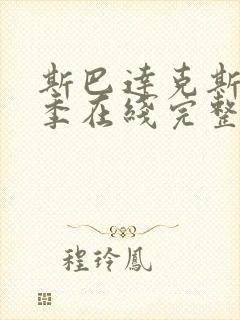 斯巴達克斯
季在綫完整
程玲鳳